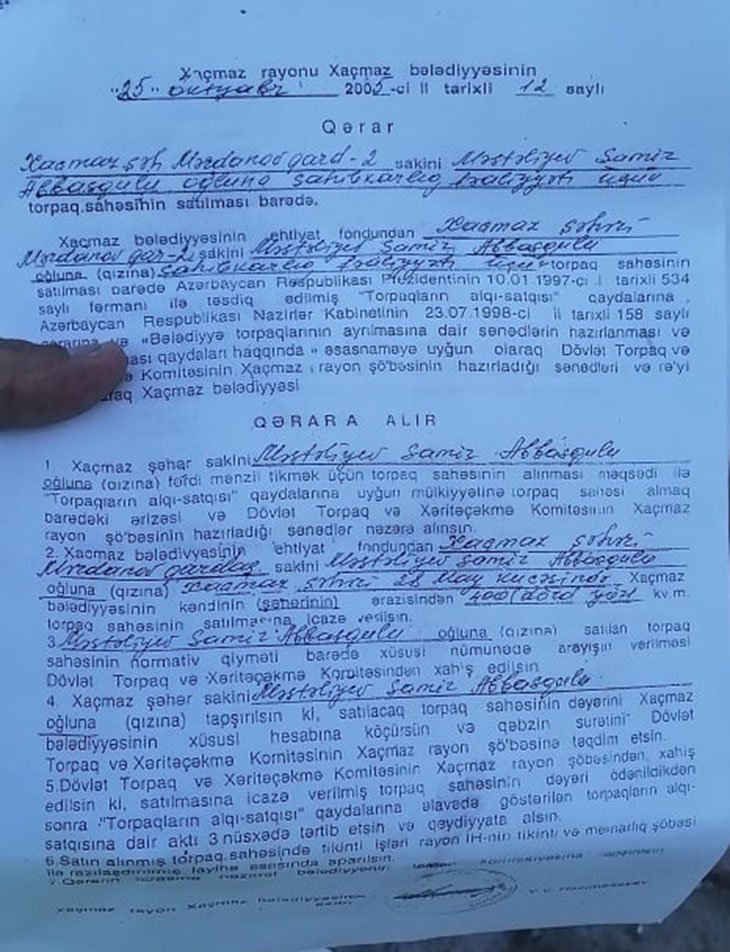 Xaçmaz rayonu Xaçmaz bələdiyyəsinin
"25" oktyabr 2005-ci il tarixli 12 saylı
Qərar
Xaçmaz şəh Mərdanov qard-2 sakini Məstəliyev Samir
Abbasqulu oğluna sahibkarlıq fəaliyyəti üçün
torpaq sahəsinin satılması barədə.
Xaçmaz bələdiyyəsinin ehtiyat fondundan Xaçmaz şəhəri
Mərdanov qar-2 sakini Məstəliyev Samir Abbasqulu
oğluna (qızına) sahibkarlıq fəaliyyəti üçün torpaq sahəsinin
satılması barədə Azərbaycan Respublikası Prezidentinin 10.01.1997-cı il tarixli 534
saylı fərmanı ilə təsdiq edilmiş "Torpaqların alqı-satqısı" qaydalarına,
Azərbaycan Respublikası Nazirlər Kabinetinin 23.07.1998-ci il tarixli 158 saylı
qərarına və «Bələdiyyə torpaqlarının ayrılmasına dair sənədlərin hazırlanması və
qaydaları haqqında» əsasnaməyə uyğun olaraq Dövlət Torpaq və
Komitəsinin Xaçmaz rayon şö'bəsinin hazırladığı sənədləri və rə'yi
Xaçmaz bələdiyyəsi
QƏRARA ALIR
1. Xaçmaz şəhər sakini Məstəliyev Samir Abbasqulu
oğluna (qızına) fərdi mənzil tikmək üçün torpaq sahəsinin alınması məqsədi ilə
"Torpaqların alqı-satqısı" qaydalarına uyğun mülkiyyətinə torpaq sahəsi almaq
barədəki ərizəsi və Dövlət Torpaq və Xəritəçəkmə Komitəsinin Xaçmaz
rayon şö'bəsinin hazırladığı sənədlər nəzərə alınsın.
2. Xaçmaz bələdiyyəsinin ehtiyat fondundan Xaçmaz şəhəri
Mərdanov qardaş sakini Məstəliyev Samir Abbasqulu
oğluna (qızına) Xaçmaz şəhəri 28 May küçəsində Xaçmaz
bələdiyyəsinin kəndinin (şəhərinin) ərazisindən 400 (dörd yüz) kv.m.
torpaq sahəsinin satılmasına icazə verilsin.
3. Məstəliyev Samir Abbasqulu oğluna (qızına) satılan torpaq
sahəsinin normativ qiyməti barədə xüsusi nümunədə arayışın verilməsi
Dövlət Torpaq və Xəritəçəkmə Komitəsindən xahiş edilsin
4. Xaçmaz şəhər sakini Məstəliyev Samir Abbasqulu
oğluna (qızına) tapşırılsın ki, satılacaq torpaq sahəsinin dəyərini Xaçmaz
bələdiyyəsinin xüsusi hesabına köçürsün və qəbzin surətini Dövlət
Torpaq və Xəritəçəkmə Komitəsinin Xaçmaz rayon şö'bəsinə təqdim etsin.
5.Dövlət Torpaq və Xəritəçəkmə Komitəsinin Xaçmaz rayon şöbəsindən xahiş
edilsin ki, satılmasına icazə verilmiş torpaq sahəsinin dəyəri ödənildikdən
sonra "Torpaqların alqı-satqısı" qaydalarına əlavədə göstərilən torpaqların alqı-
satqısına dair aktı 3 nüsxədə tərtib etsin və qeydiyyata alsın.
6.Satın alınmış torpaq sahəsində tikinti işləri rayon İH-nin tikinti və memarlıq şöbəsi
ilə razılaşdırılmış layihə əsasında aparılsın.
7.Qərarın icrasına nəzarət bələdiyyənin torpaq komissiyasına
Xaçmaz rayon Xaçmaz bələdiyyəsinin
sədri